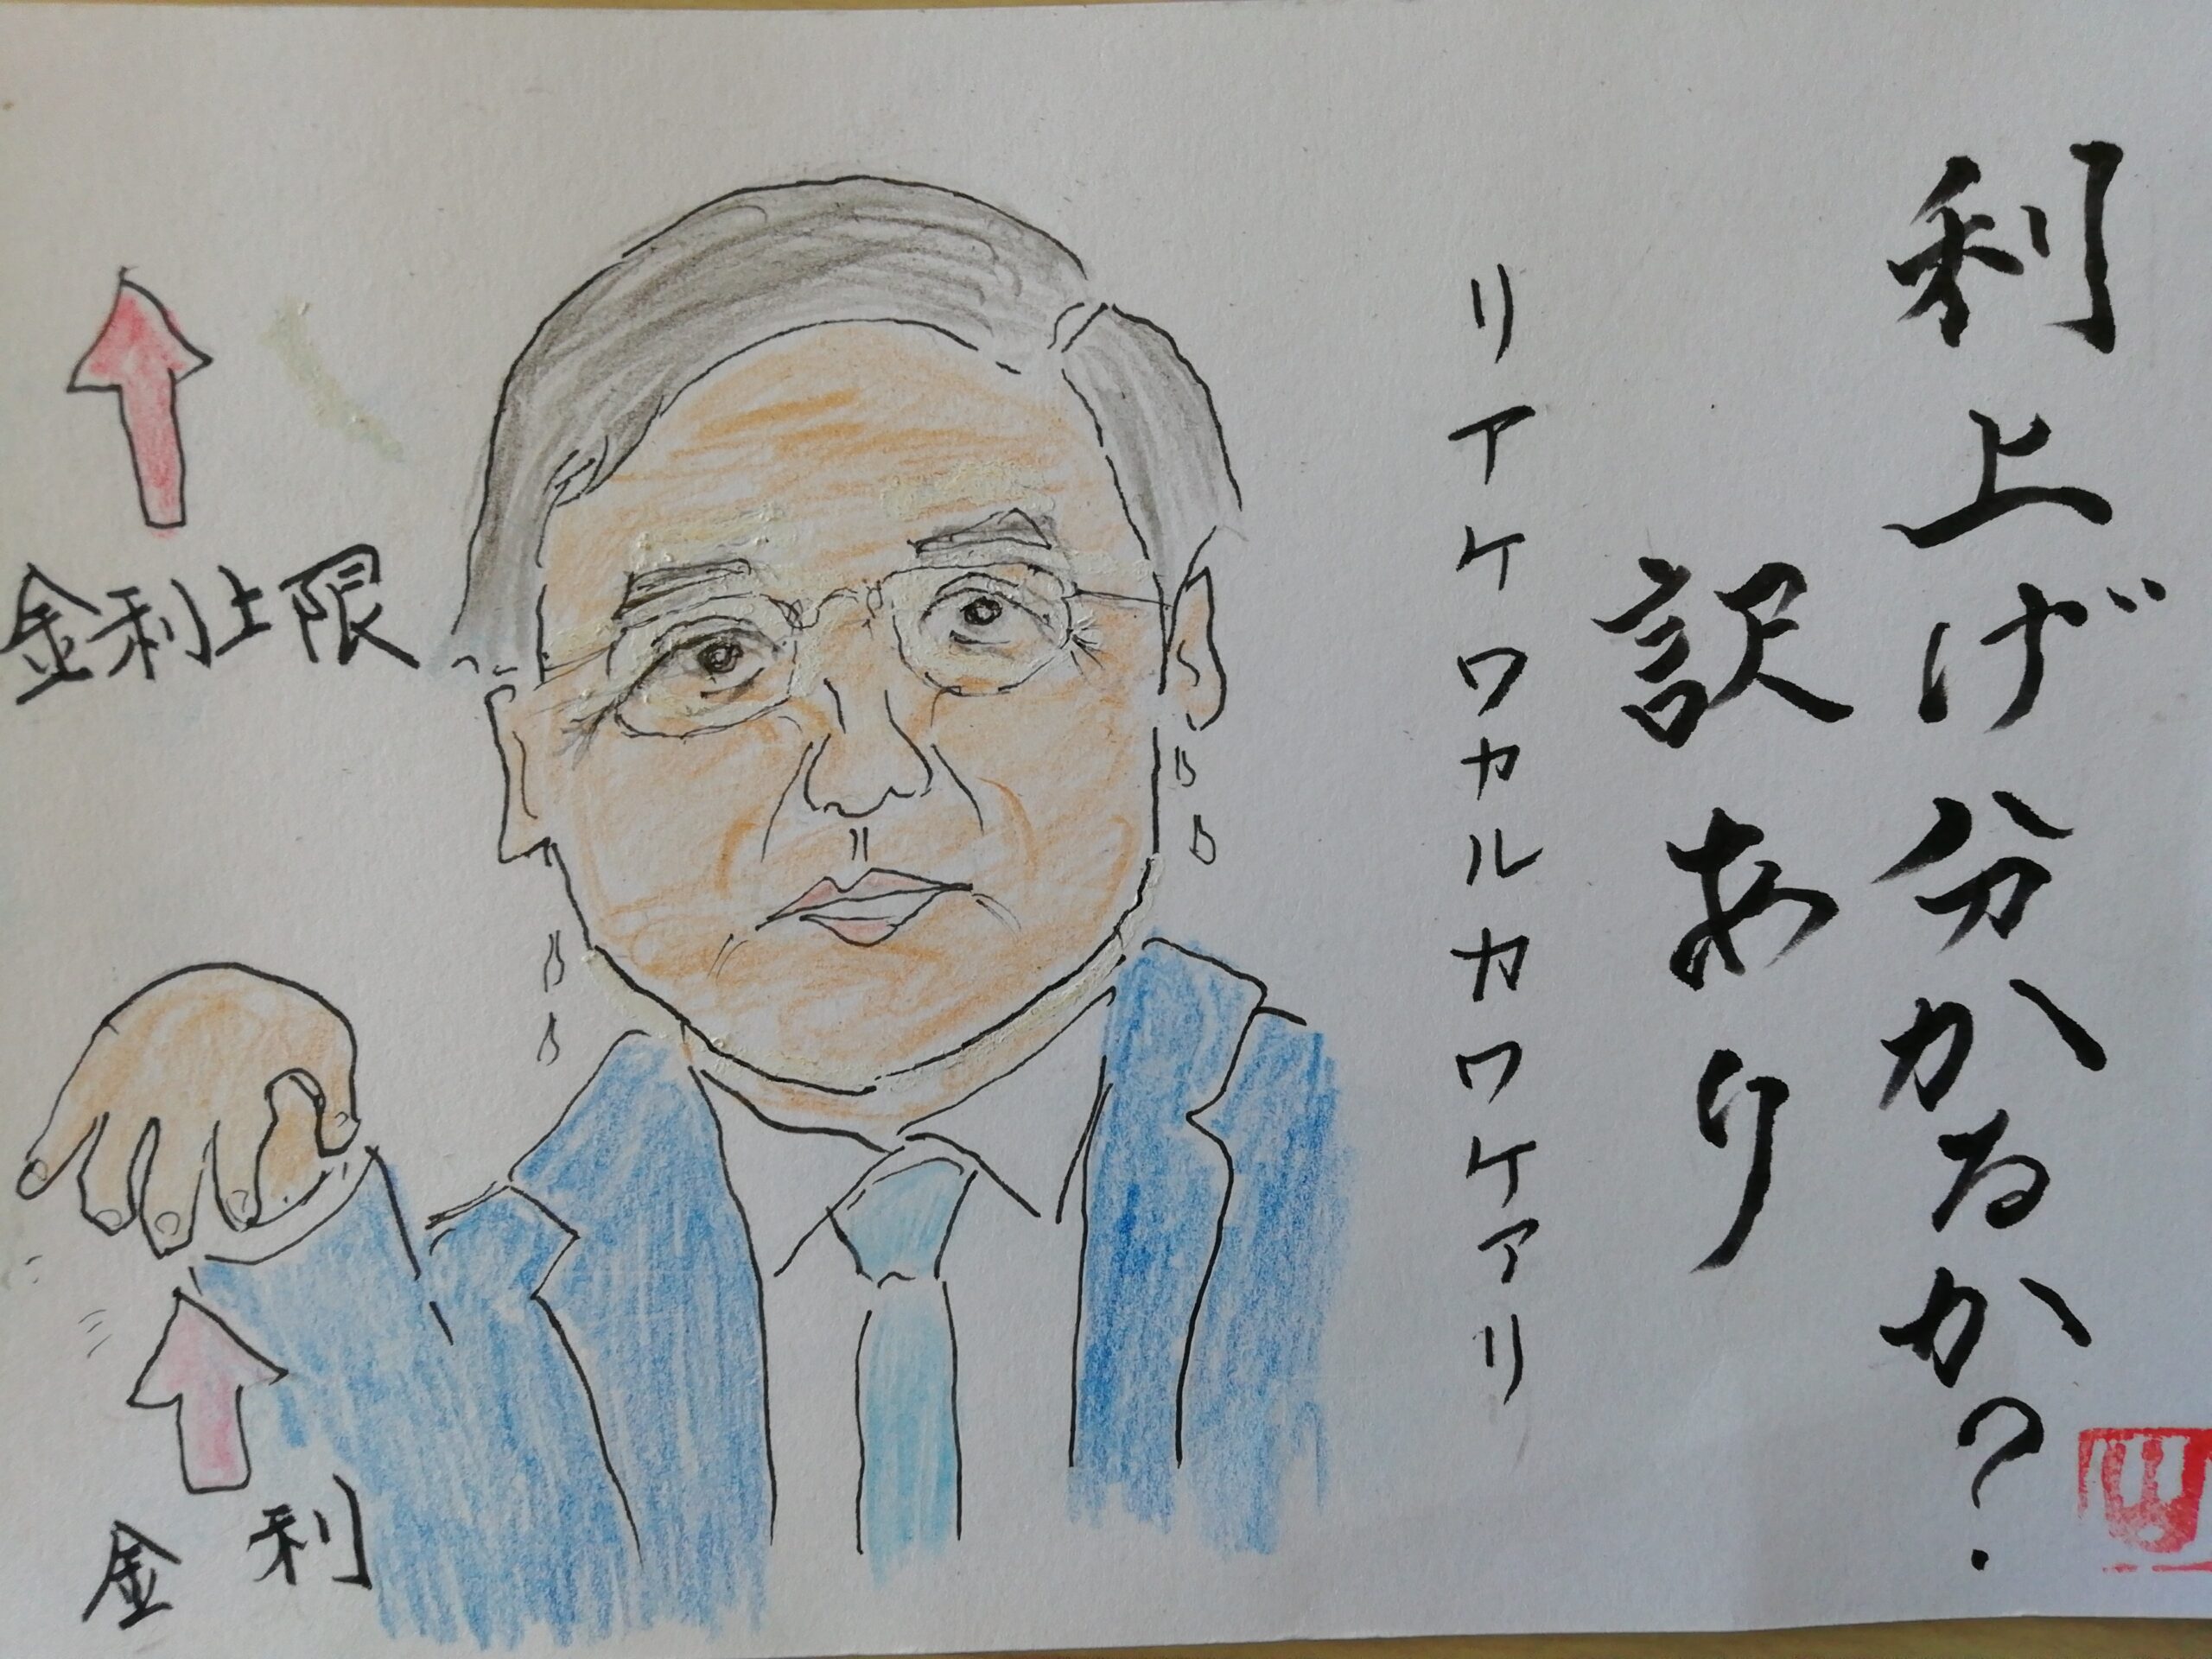 利上げ分かるか?
訳あり
リアケワカルカワケアリ
金利上限
金利